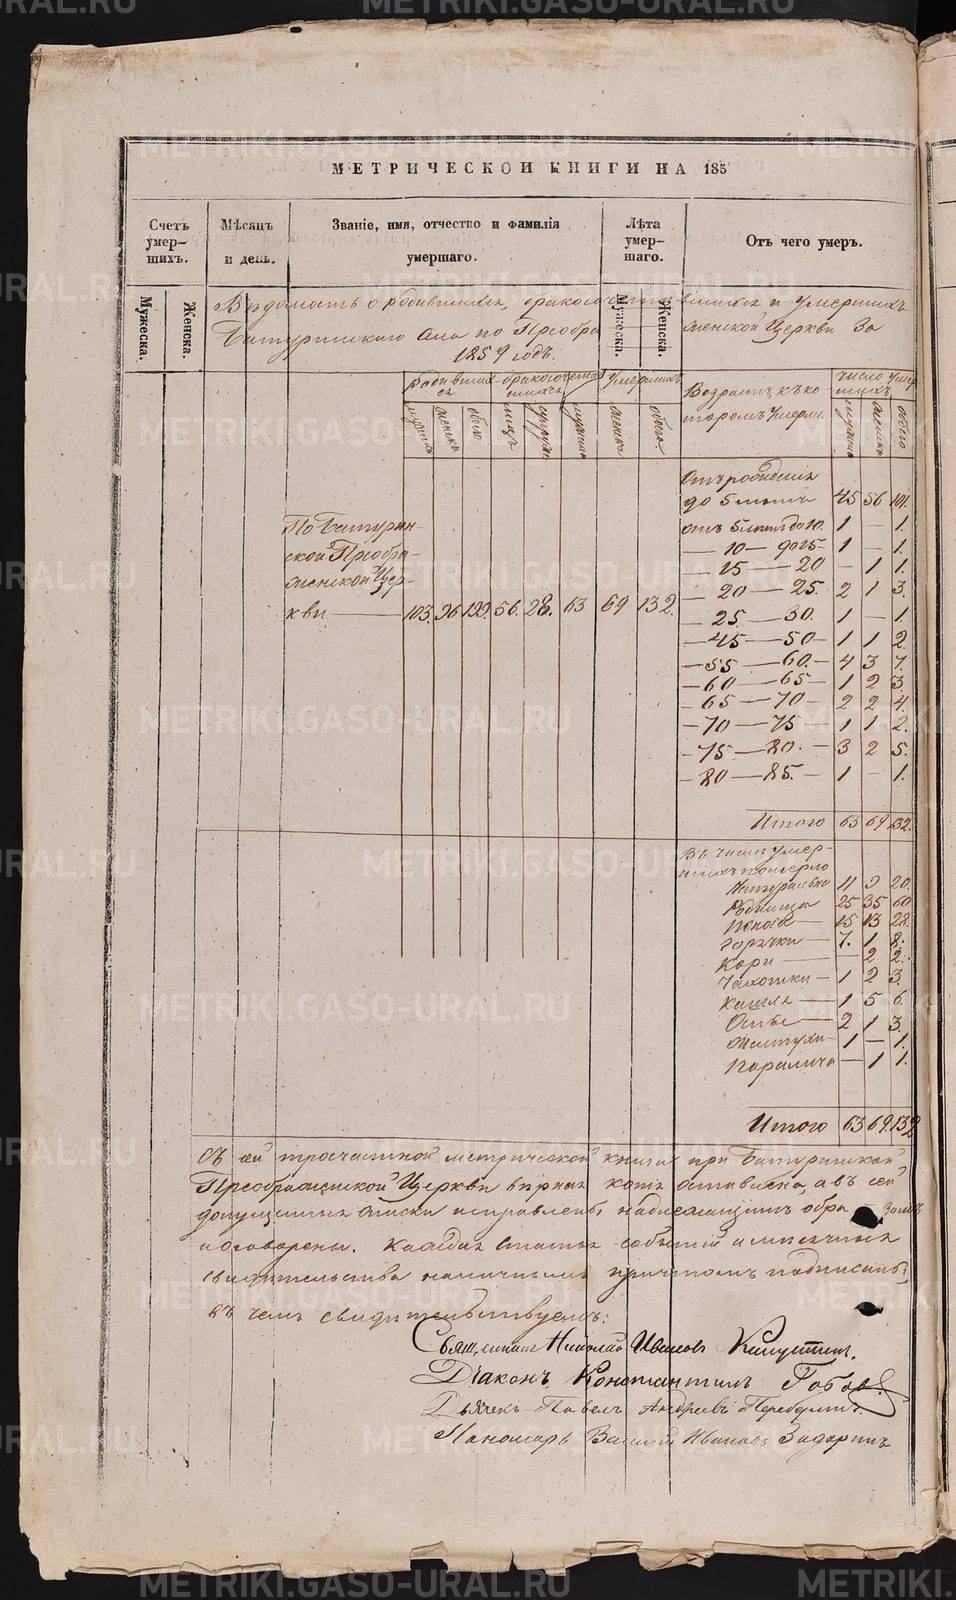 МЕТРИЧЕСКОЙ КНИГИ НА 185
Счетъ умер- шихъ.
Мѣсяцъ и день.
Званіе, имя, отчество и фамилія умершаго.
Лѣта умер- шаго.
Отъ чего умеръ.
Мужеска.
Женска.
Мужеска.
Женска.
Вѣдомость о родившихся, бракосочетавшихся и умершихъ
Батуринскаго села по Преображенской Церкви за
1859 годъ.
родившихся
бракосочетавшихся
умершихъ
Возрастъ къ которомъ умерли.
число умершихъ
мужска женска обоего лицъ супруж. мужска женска обоего
мужска женска обоего
По Батурин-
ской Преобра-
женской Цер-
кви — 103. 96 199. 56. 28. 63 69 132.
Отъ рожденія
до 5 летъ 45 56 101.
отъ 5 летъ до 10. 1 — 1.
— 10 — до 15 — 1 — 1.
— 15 — 20 — 1 1.
— 20 — 25. 2 1 3.
— 25 — 30. 1 — 1.
— 45 — 50 — 1 1 2.
— 55 — 60. — 4 3 7.
— 60 — 65 — 1 2 3.
— 65 — 70 — 2 2 4.
— 70 — 75 1 1 2.
— 75 — 80. — 3 2 5.
— 80 — 85. — 1 — 1.
Итого 63 69 132.
Въ числе умер-
шихъ померло
Натурально 11 9 20.
Роднища 25 35 60
Поноса — 15 13 28.
Горячки — 7. 1 8.
Кори — — 2 2.
Чахотки — 1 2 3.
Кашля — 1 5 6.
Оспы — 2 1 3.
1 — 1.
Паралича — 1 1.
Итого 63 69 132
Съ сей троечастной метрической книги при Батуринской
Преображенской Церкви верная копія оставлена, а въ сей
допущенныя описки исправлены надлежащимъ образомъ
и оговорены. Каждая статья событій и месячныя
свидетельства наличнымъ причтомъ подписаны,
въ чемъ свидетельствуемъ:
Священникъ Николай Ивановъ Капустинъ.
Діаконъ Константинъ
Дьячекъ Павелъ Андреевъ
Пономарь Василій Ивановъ
METRIKI.GASO-URAL.RU